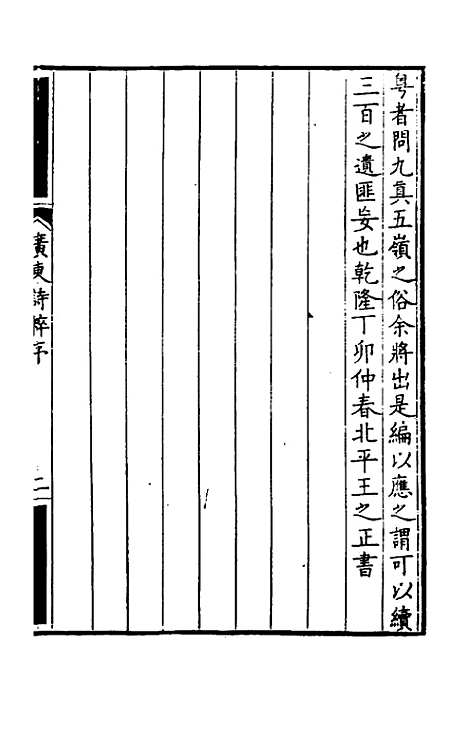 粤者問九真五嶺之俗余將出是編以應之謂可以續
三百之遺匪妄也乾隆丁卯仲春北平王之正書
廣東詩粹序
二